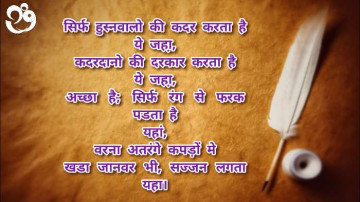 सिर्फ हुस्नवालो की कदर करता है
ये जहा़,
कदरदानो की दरकार करता है
ये जहा़,
अच्छा है; सिर्फ रंग से फरक
पडता है
यहां,
वरना अतरंगे कपड़ों मे
खडा जानवर भी, सज्जन लगता
यहा।